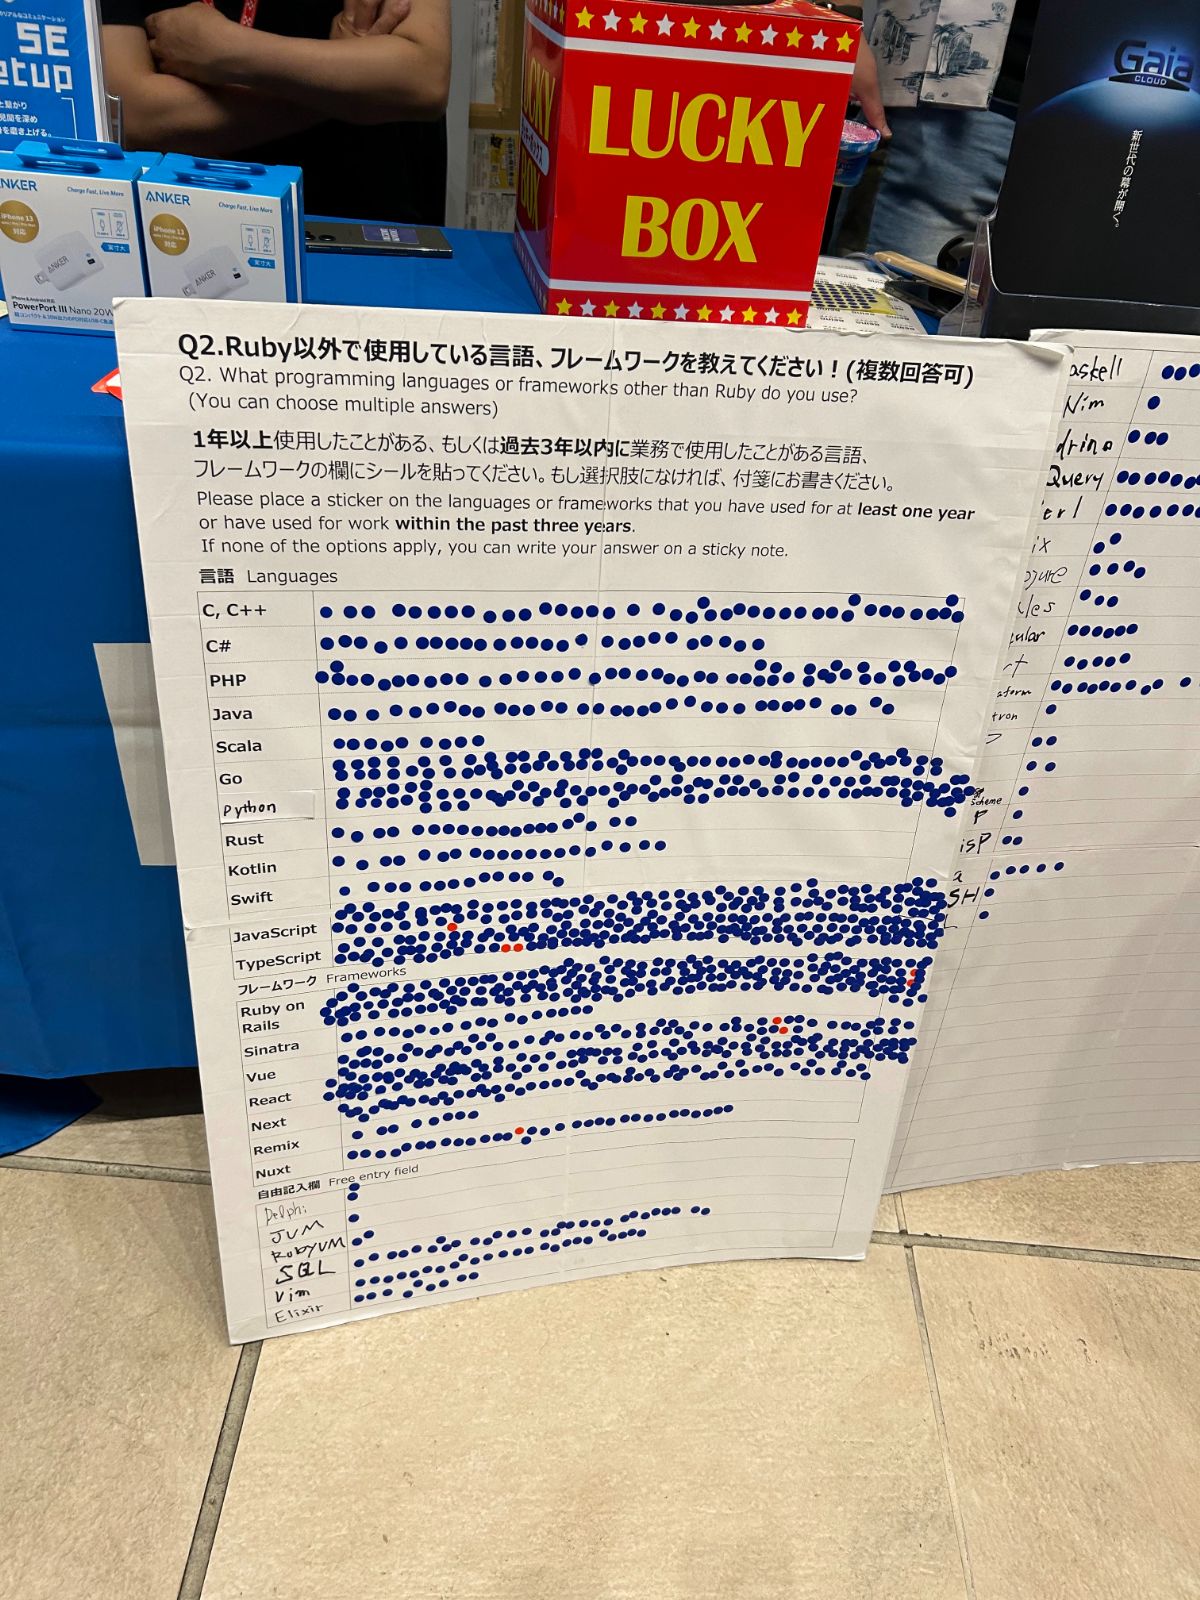 SE
etup
と繋がり
見聞を深め
を磨き上げる。
ANKER
Charge Fast, Live More
iPhone 13
対応
実寸大
ANKER
PowerPort III Nano 20W
ANKER
Charge Fast, Live More
iPhone 13
対応
実寸大
ANKER
LUCKY
BOX
Gaia
CLOUD
新世代の幕が開く。
Q2.Ruby以外で使用している言語、フレームワークを教えてください！(複数回答可)
Q2. What programming languages or frameworks other than Ruby do you use?
(You can choose multiple answers)
1年以上使用したことがある、もしくは過去3年以内に業務で使用したことがある言語、
フレームワークの欄にシールを貼ってください。もし選択肢になければ、付箋にお書きください。
Please place a sticker on the languages or frameworks that you have used for at least one year
or have used for work within the past three years.
If none of the options apply, you can write your answer on a sticky note.
言語 Languages
C, C++
C#
PHP
Java
Scala
Go
Python
Rust
Kotlin
Swift
JavaScript
TypeScript
フレームワーク Frameworks
Ruby on
Rails
Sinatra
Vue
React
Next
Remix
Nuxt
自由記入欄 Free entry field
Delphi
JVM
RubyVM
SQL
Vim
Elixir
askell
Nim
drino
Query
erl
ix
ojure
les
gular
rt
aform
tron
scheme
P
isP
a
SH